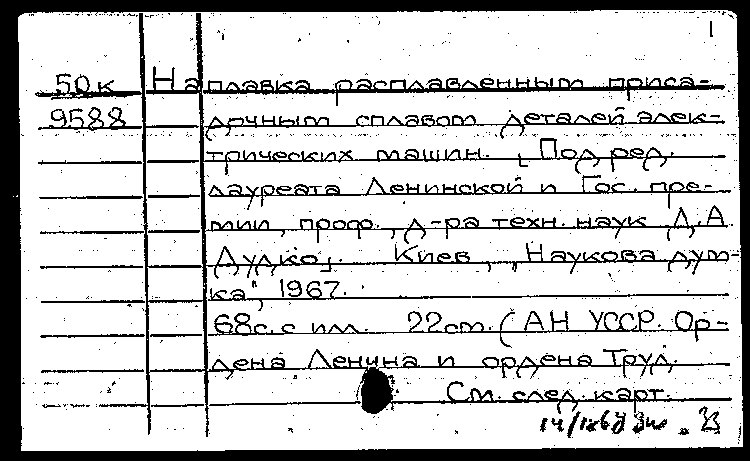 1
50к Наплавка расплавленным приса-
9588 дочным сплавом деталей элек-
трических машин. [Под ред.
лауреата Ленинской и Гос. пре-
мии, проф., д-ра техн. наук Д.А
Дудко]. Киев, „Наукова дум-
ка", 1967.
68с. с илл. 22см. (АН УССР. Ор-
дена Ленина и ордена Труд.
См. след. карт.